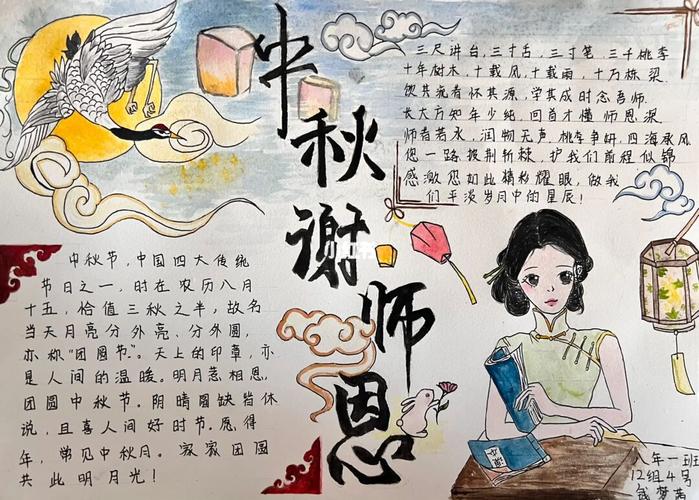 中秋谢师恩
三尺讲台,三寸舌,三寸笔,三千桃李
十年树木,十载风,十载雨,十万栋梁
饮其流者怀其源,学其成时念吾师.
长大方知年少纯,回首才懂师恩深
师者若水,润物无声,桃李争妍,四海承风
您一路披荆斩棘,护我们前程似锦
感激您如此精彩耀眼,做我
们平淡岁月中的星辰!
中秋节,中国四大传统
节日之一,时在农历八月
十五,恰值三秋之半,故名
当天月亮分外亮、分外圆,
亦称"团圆节"。天上的印章,亦
是人间的温暖。明月惹相思,
团圆中秋节。阴晴圆缺皆休
说,且喜人间好时节。愿得
年,常见中秋月。家家团圆
共此明月光!
八年一班
12组4号